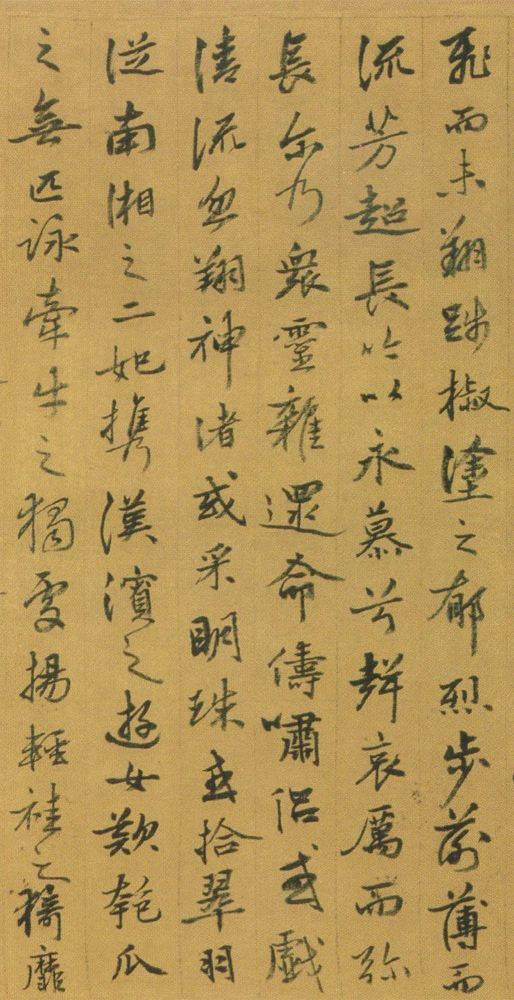 飛而未翔踐椒塗之郁烈步蘅薄而
流芳超長吟以永慕兮聲哀厲而弥
長尔乃衆靈雜遝命儔嘯侣或戲
清流或翔神渚或采明珠或拾翠羽
從南湘之二妃携漢濱之遊女歎匏瓜
之無匹詠牽牛之獨處揚輕袿之猗靡